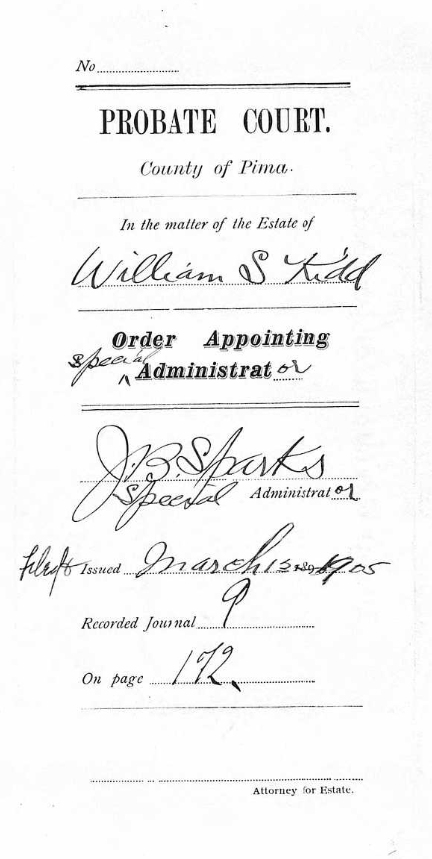 No
PROBATE COURT.
County of Pima.
In the matter of the Estate of
William S Kidd
Order Appointing
special
^ Administrat or
J.B. Sparks
Special Administrat or
Issued March 13 1905
Recorded Journal 9
On page 192
Attorney for Estate.